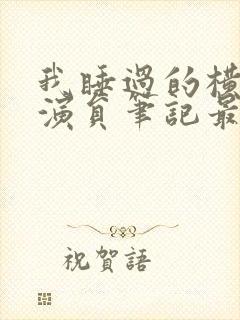 我睡過的橫
演員筆記最
祝賀語